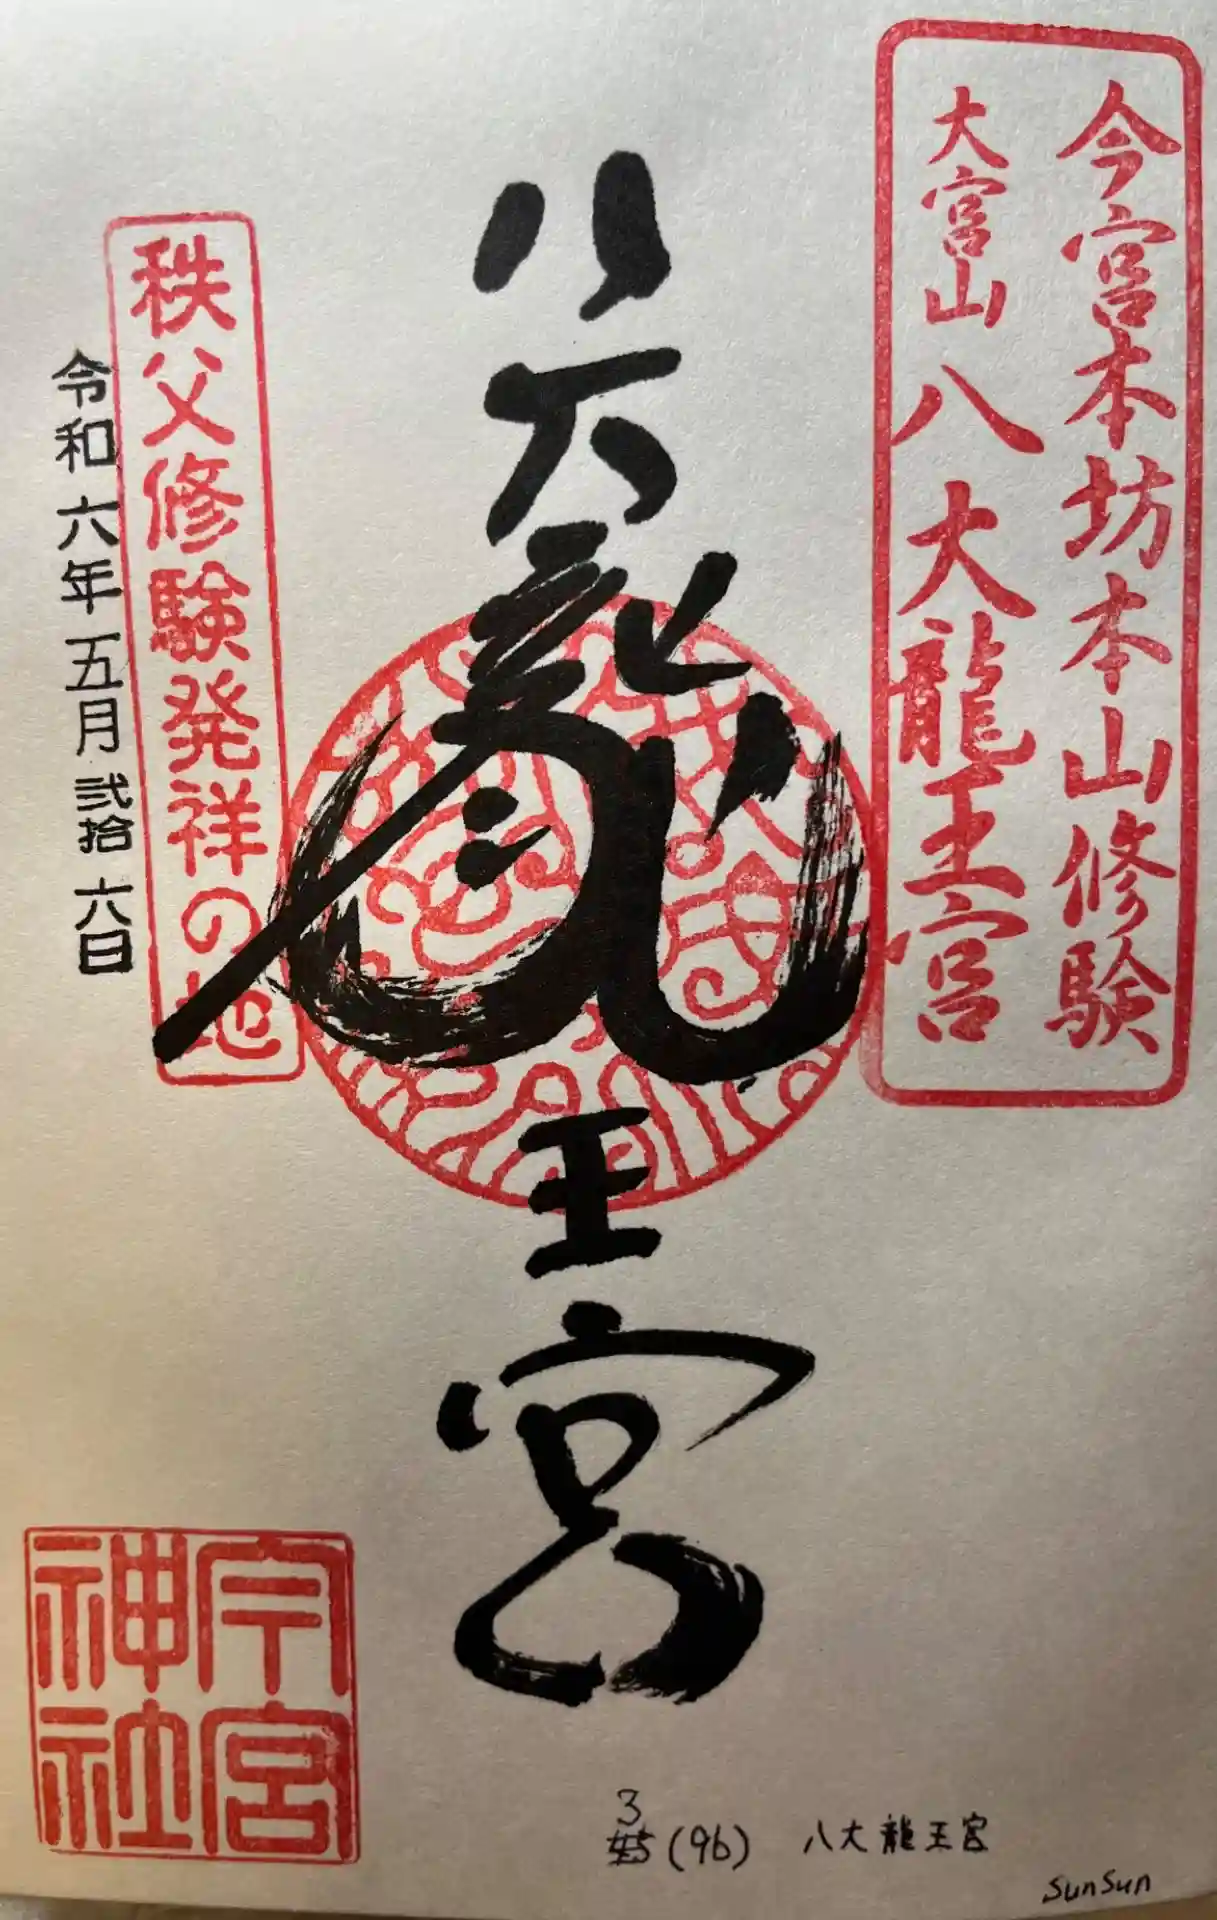 今宮本坊本山修験
大宮山 八大龍王宮
八大龍王宮
秩父修験発祥の地
令和六年五月弐拾六日
今宮
神社
3
(96) 八大龍王宮
SunSun